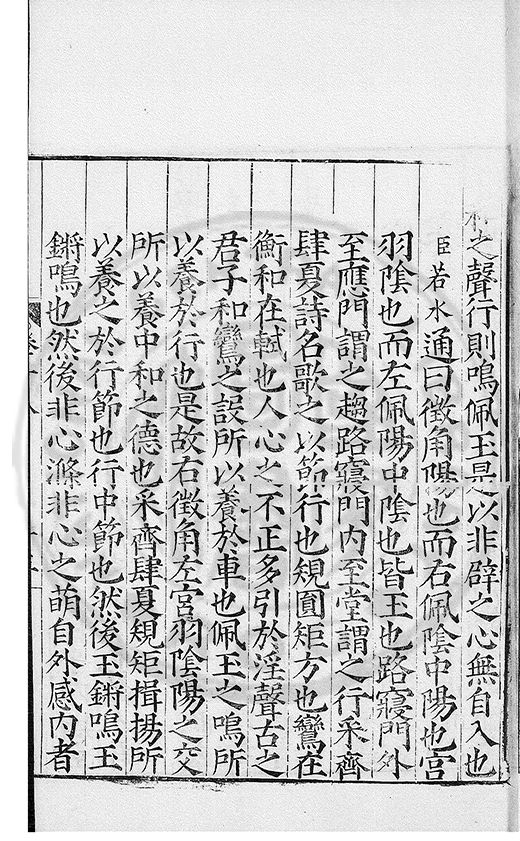 和之聲行則鳴佩玉是以非辟之心無自入也
臣若水通曰徵角陽也而右佩陰中陽也宮
羽陰也而左佩陽中陰也皆玉也路寢門外
至應門謂之趨路寢門內至堂謂之行采齊
肆夏詩名歌之以節行也規圓矩方也鸞在
衡和在軾也人心之不正多引於淫聲古之
君子和鸞之設所以養於車也佩玉之鳴所
以養於行也是故右徵角左宮羽陰陽之交
所以養中和之德也采齊肆夏規矩揖揚所
以養之於行節也行中節也然後玉鏘鳴玉
鏘鳴也然後非心滌非心之萌自外感內者